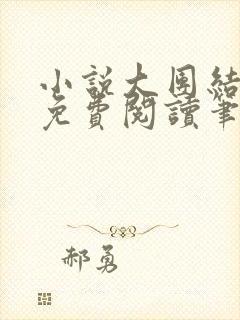 小說大團結
免費閱讀筆
郝勇